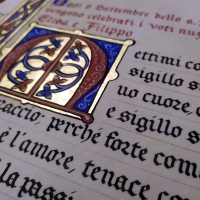 8 Settembre
vengono celebrati i voti
Elisa e Filippo
Mettimi co
sigillo s
uo cuore, c
e sigillo s
raccio; perché forte com
è l'amore, tenace com
la passi